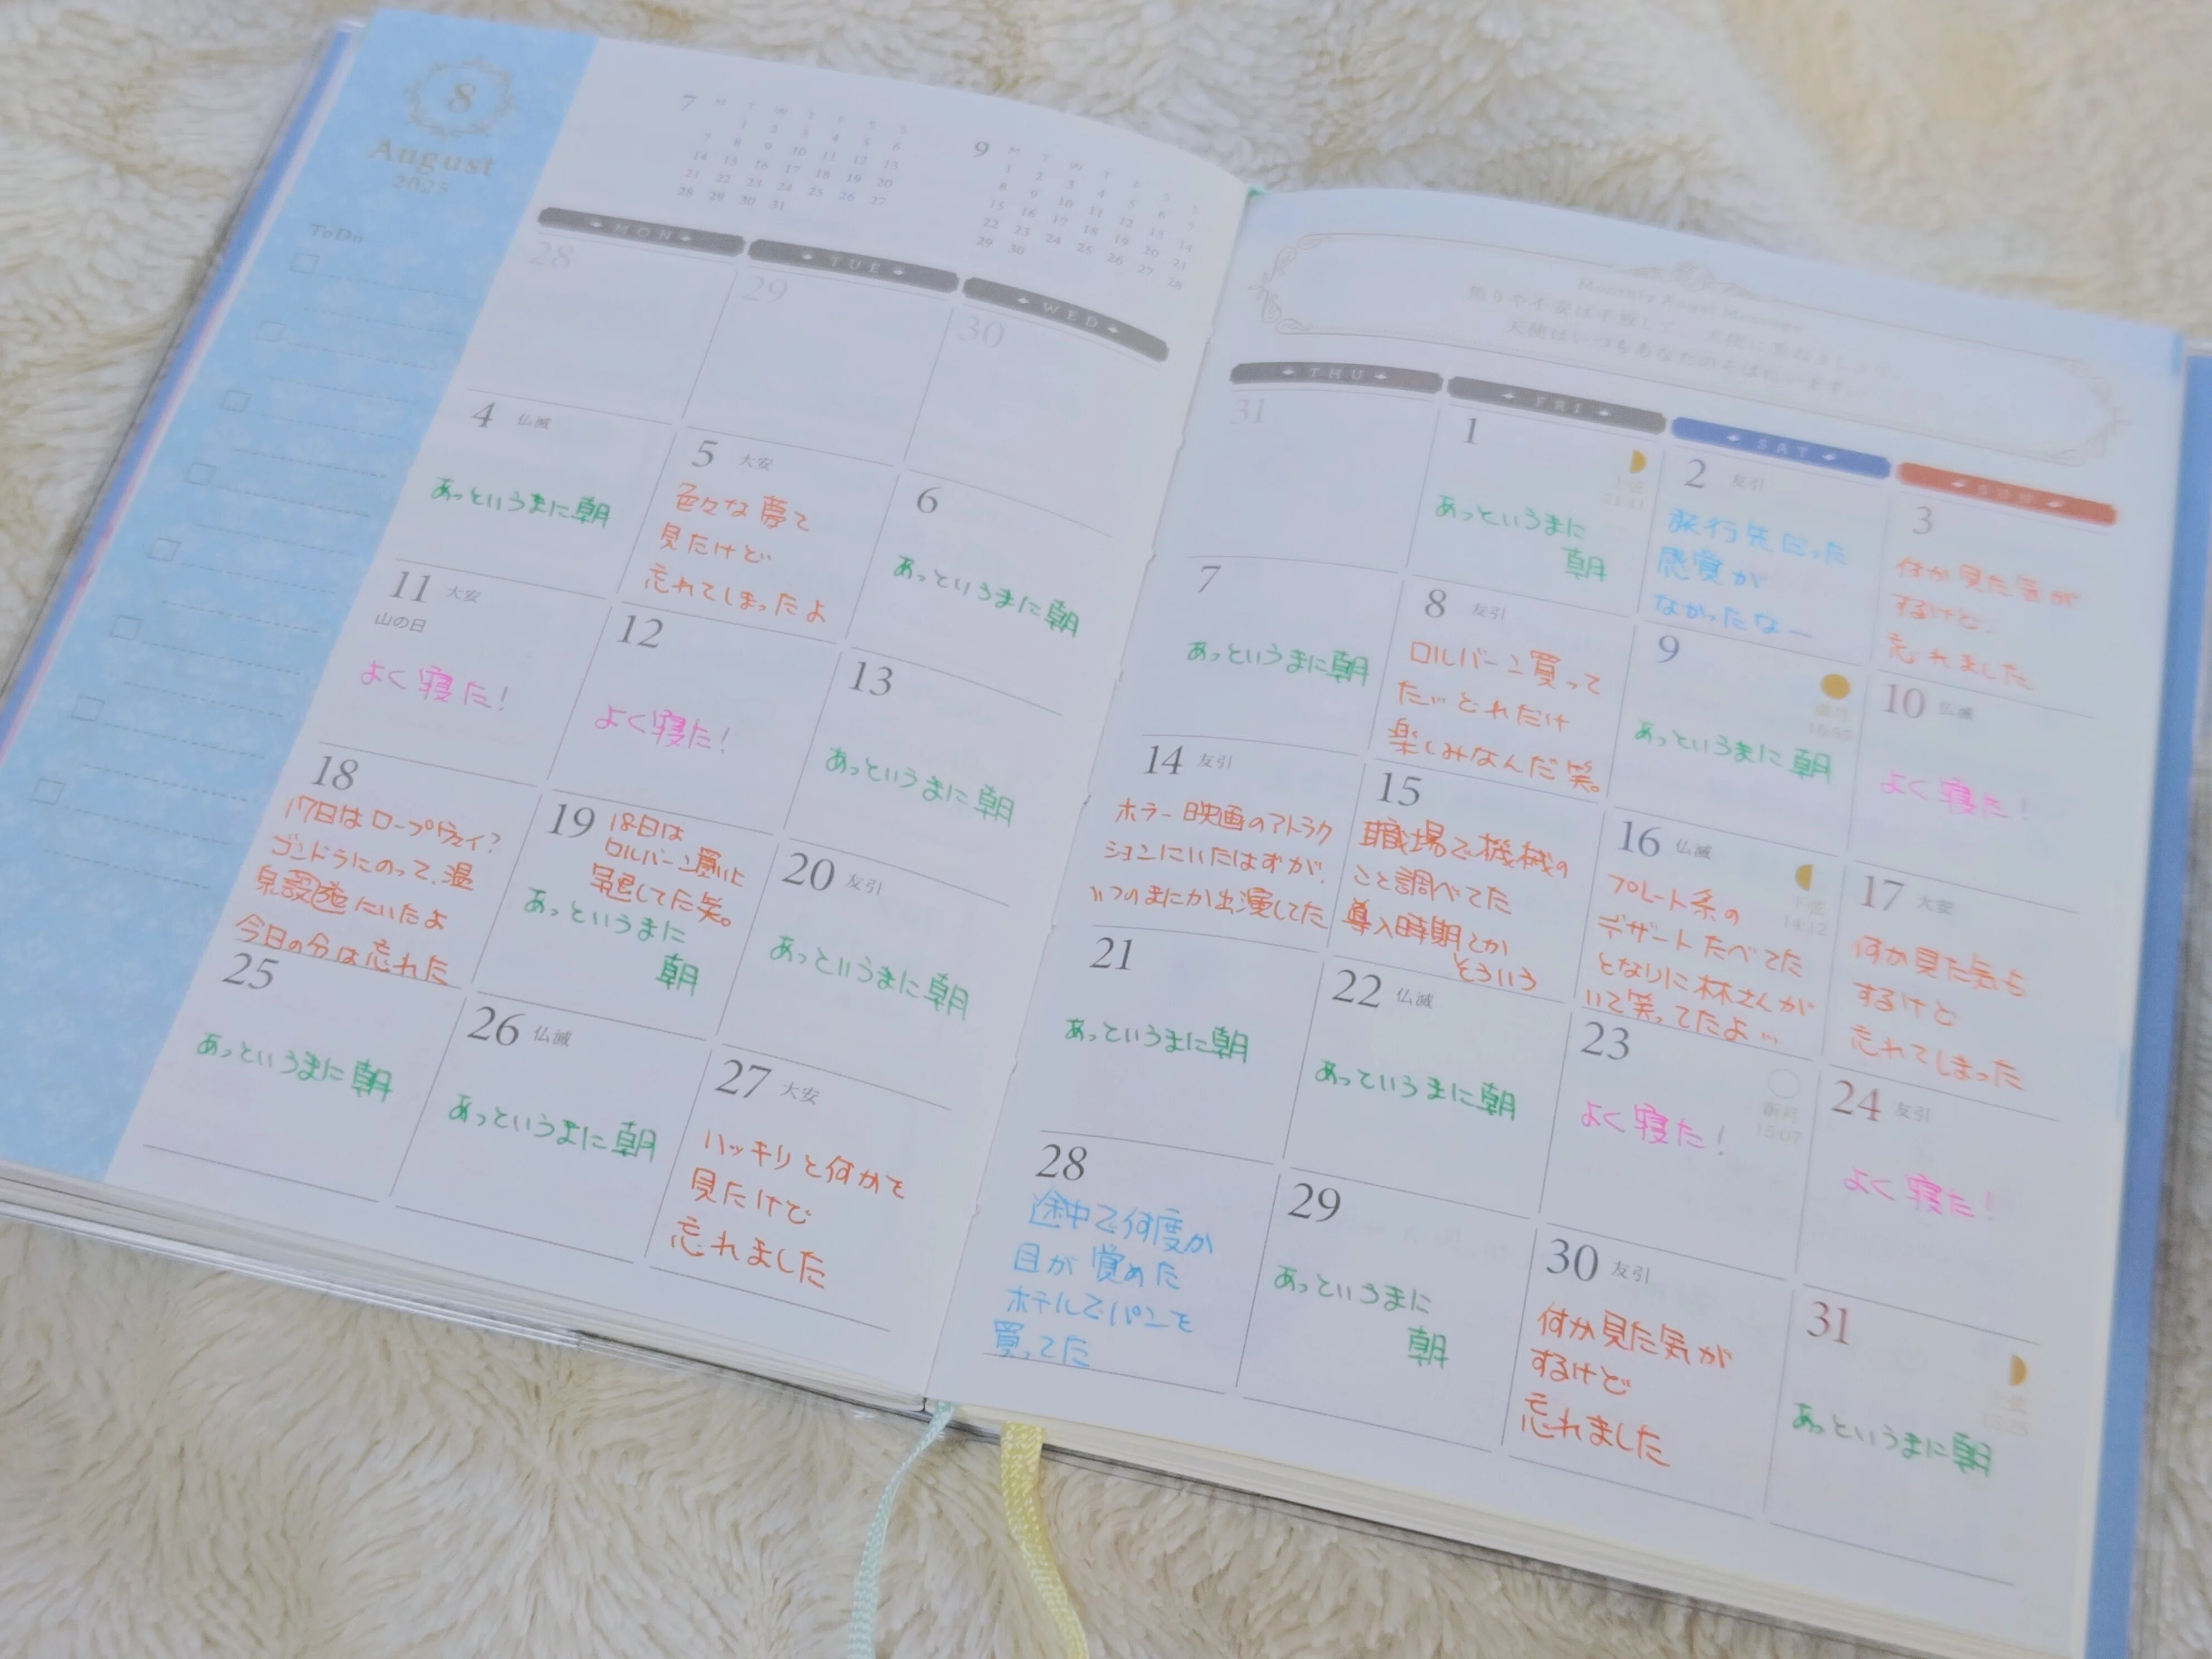 8
August
2025
ToDo
7 M T W T F S S
1 2 3 4 5 6
7 8 9 10 11 12 13
14 15 16 17 18 19 20
21 22 23 24 25 26 27
28 29 30 31
9 M T W T F S S
1 2 3 4 5 6 7
8 9 10 11 12 13 14
15 16 17 18 19 20 21
22 23 24 25 26 27 28
29 30
Monthly Angel Message
焦りや不安は手放して、天使に委ねましょう。
天使はいつもあなたのそばにいます。
MON
TUE
WED
THU
FRI
SAT
SUN
28
29
30
31
1
上弦
21:41
あっというまに
朝
2 友引
旅行先だった
感覚が
なかったなー
3
何か見た気が
するけど、
忘れました
4 仏滅
あっというまに朝
5 大安
色々な夢て
見たけど
忘れてしまったよ
6
あっというまに朝
7
あっというまに朝
8 友引
ロルバーン買って
た…どれだけ
楽しみなんだ笑。
9
満月
16:55
あっというまに朝
10 仏滅
よく寝た!
11 大安
山の日
よく寝た!
12
よく寝た!
13
あっというまに朝
14 友引
ホラー映画のアトラク
ションにいたはずが、
いつのまにか出演してた
15
職場で機械の
こと調べてた
導入時期とか
そういう
16 仏滅
下弦
14:12
プレート系の
デザートたべてた
となりに林さんが
いて笑ってたよ…
17 大安
何か見た気も
するけど
忘れてしまった
18
17日はロープウェイ?
ゴンドラにのって、温
泉設施にいたよ
今日の分は忘れた
19 18日は
ロルバーン買いに
早退してた笑。
あっというまに
朝
20 友引
あっというまに朝
21
あっというまに朝
22 仏滅
あっというまに朝
23
新月
15:07
よく寝た!
24 友引
よく寝た!
25
あっというまに朝
26 仏滅
あっというまに朝
27 大安
ハッキリと何かを
見たけど
忘れました
28
途中で何度か
目が覚めた
ホテルでパンを
買ってた
29
あっというまに
朝
30 友引
何か見た気が
するけど
忘れました
31
上弦
あっというまに朝